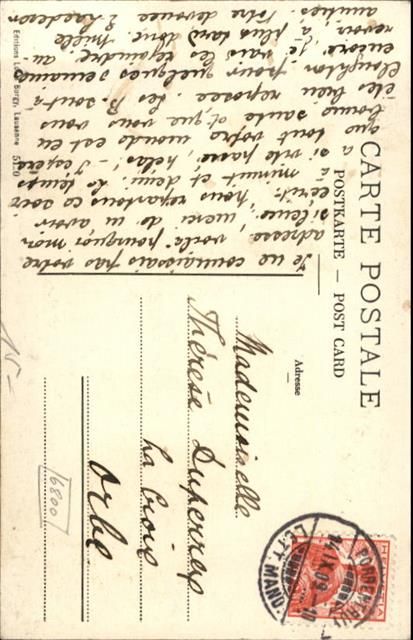 CARTE POSTALE
POSTKARTE — POST CARD
Adresse
Je ne connaissais pas votre
adresse, voilà pourquoi mon
silence, merci de m'avoir
écrit. Nous repartons ce soir
à minuit et demi. Le temps
a si vite passé, hélas! J'espère
que tout votre monde est en
bonne santé et que vous vous
êtes bien reposée. Les B. sont à
pour quelques semaines
encore, je vais les rejoindre, au
revoir à plus tard donc. Mille
amitiés. Votre dévouée
Mademoiselle
Thérèse Duperrex
La Croix
Orbe
Editions Louis Burgy, Lausanne 5120
HELVETIA
PORRENTRUY
14.IX.09
LETT. MAND.
15-
6800